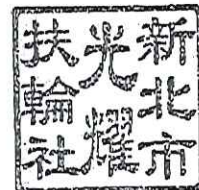 新北市
光耀
扶輪社